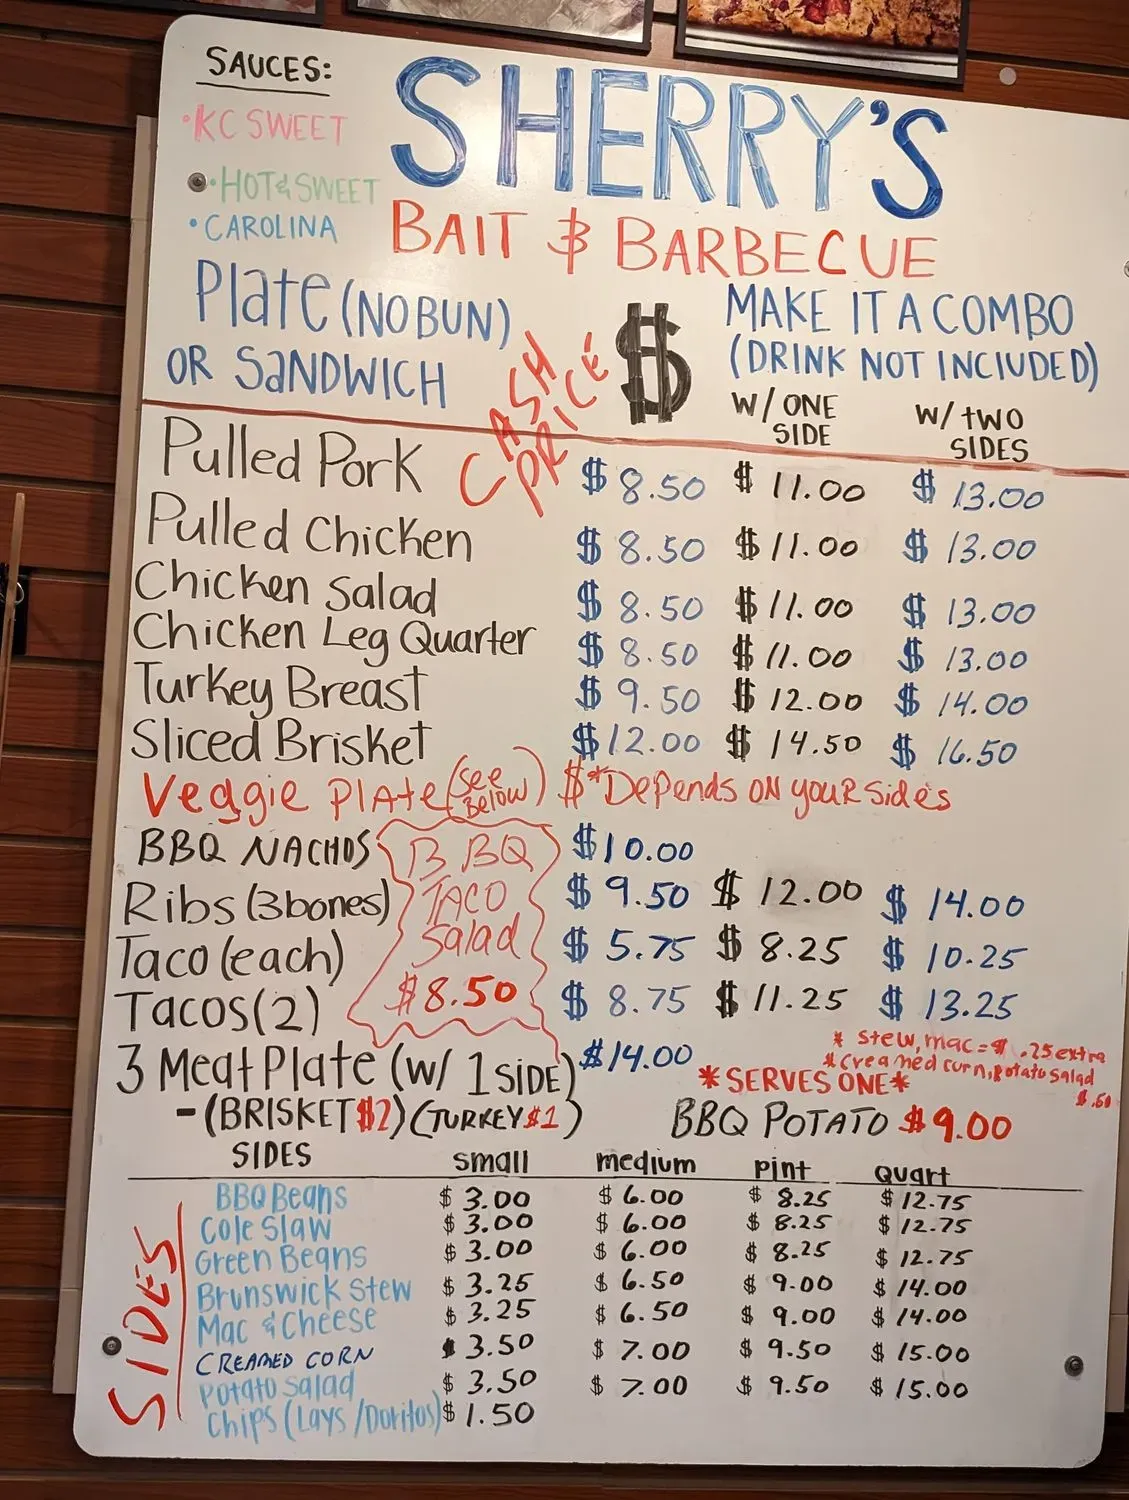 SAUCES:
•KC SWEET
•HOT & SWEET
•CAROLINA
SHERRY'S
BAIT & BARBECUE
Plate (NO BUN)
OR SANDWICH
CASH
PRICE
$
MAKE IT A COMBO
(DRINK NOT INCLUDED)
W/ ONE SIDE
W/ TWO SIDES
Pulled Pork $ 8.50 $ 11.00 $ 13.00
Pulled Chicken $ 8.50 $ 11.00 $ 13.00
Chicken Salad $ 8.50 $ 11.00 $ 13.00
Chicken Leg Quarter $ 8.50 $ 11.00 $ 13.00
Turkey Breast $ 9.50 $ 12.00 $ 14.00
Sliced Brisket $ 12.00 $ 14.50 $ 16.50
Veggie Plate (See Below) $ *Depends ON your sides
BBQ NACHOS $10.00
Ribs (3 bones) $ 9.50 $ 12.00 $ 14.00
Taco (each) $ 5.75 $ 8.25 $ 10.25
Tacos (2) $ 8.75 $ 11.25 $ 13.25
BBQ
TACO
Salad
$8.50
3 Meat Plate (w/ 1 SIDE) $14.00
-(BRISKET $2) (TURKEY $1)
* Stew, mac = $ .25 extra
* Creamed corn, potato salad
$ .50
*SERVES ONE*
BBQ POTATO $9.00
SIDES small medium pint Quart
SIDES
BBQ Beans $ 3.00 $ 6.00 $ 8.25 $ 12.75
Cole Slaw $ 3.00 $ 6.00 $ 8.25 $ 12.75
Green Beans $ 3.00 $ 6.00 $ 8.25 $ 12.75
Brunswick Stew $ 3.25 $ 6.50 $ 9.00 $ 14.00
Mac & Cheese $ 3.25 $ 6.50 $ 9.00 $ 14.00
CREAMED CORN $ 3.50 $ 7.00 $ 9.50 $ 15.00
Potato Salad $ 3.50 $ 7.00 $ 9.50 $ 15.00
Chips (Lays/Doritos) $ 1.50